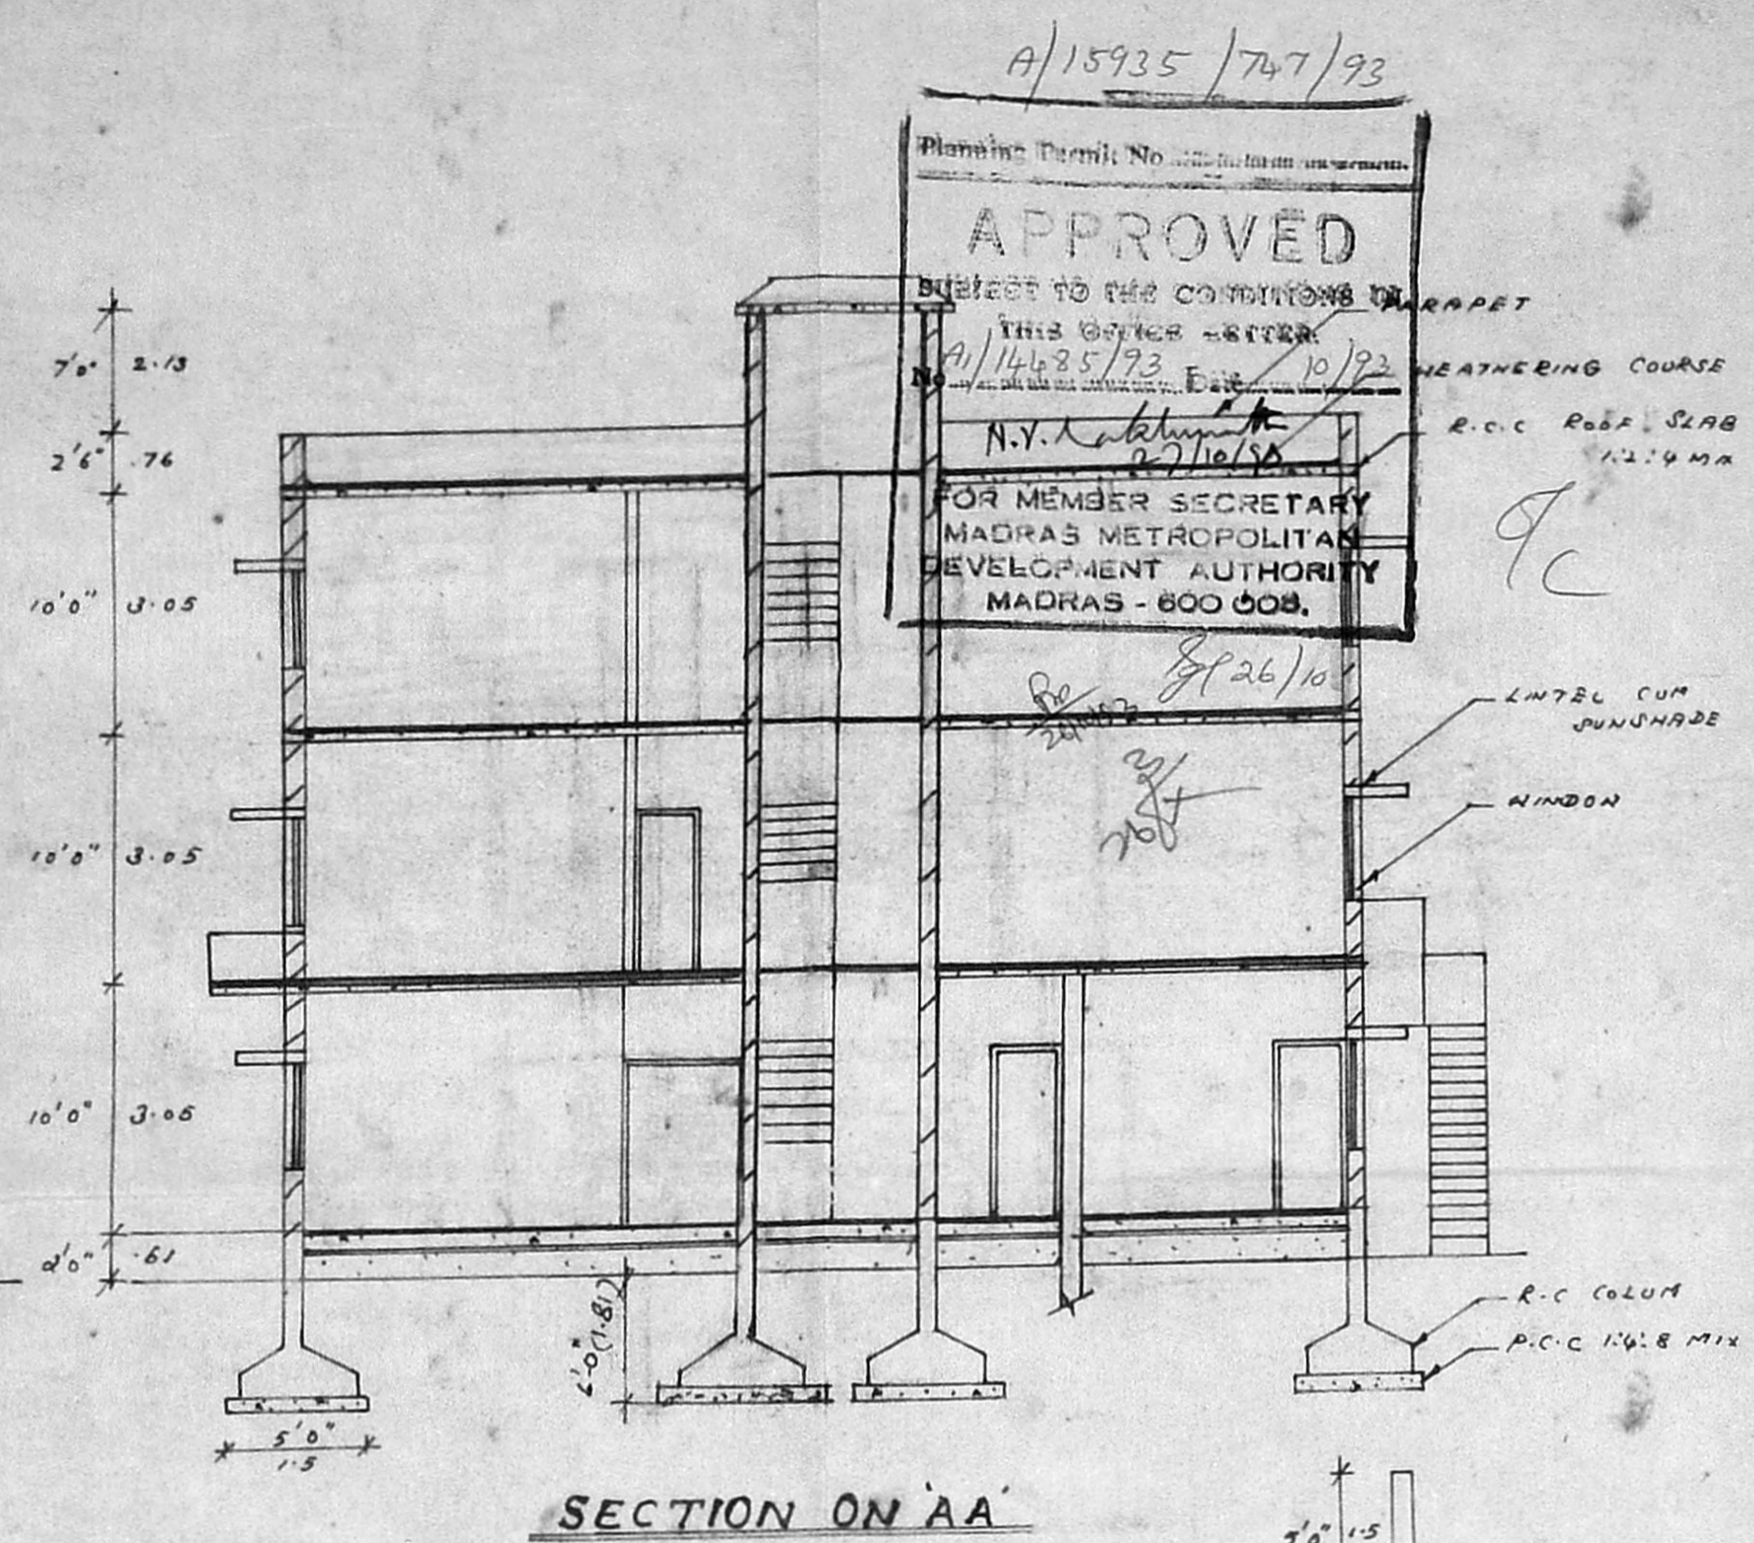 A/15935/747/93
Planning Permit No
APPROVED
SUBJECT TO THE CONDITIONS IN
THIS OFFICE LETTER
No A1/14485/93 Date 10/93
N.V.
27/10/93
FOR MEMBER SECRETARY
MADRAS METROPOLITAN
DEVELOPMENT AUTHORITY
MADRAS - 600 008.
26/10
PARAPET
WEATHERING COURSE
R.C.C ROOF SLAB
1:2:4 MIX
O/C
LINTEL CUM
SUNSHADE
WINDOW
R.C COLUM
P.C.C 1:4:8 MIX
7'0" 2.13
2'6" .76
10'0" 3.05
10'0" 3.05
10'0" 3.05
2'0" .61
6'-0" (1.81)
5'0"
1.5
SECTION ON 'AA'
1.5